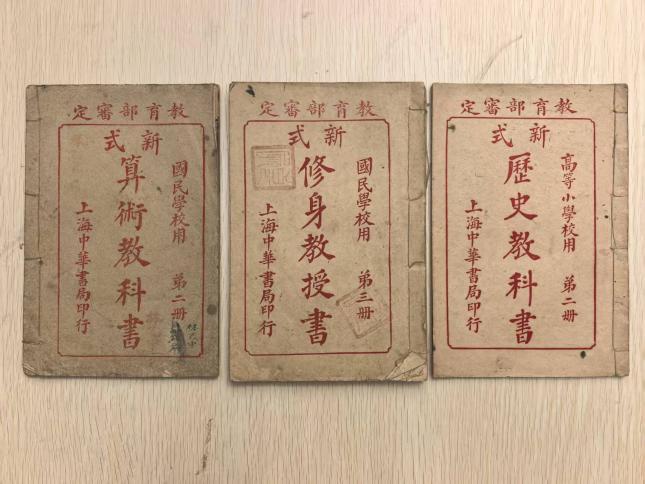 教育部審定
新式
國民學校用 第二册
算術教科書
上海中華書局印行
教育部審定
新式
國民學校用 第三册
修身教授書
上海中華書局印行
教育部審定
新式
高等小學校用 第二册
歷史教科書
上海中華書局印行